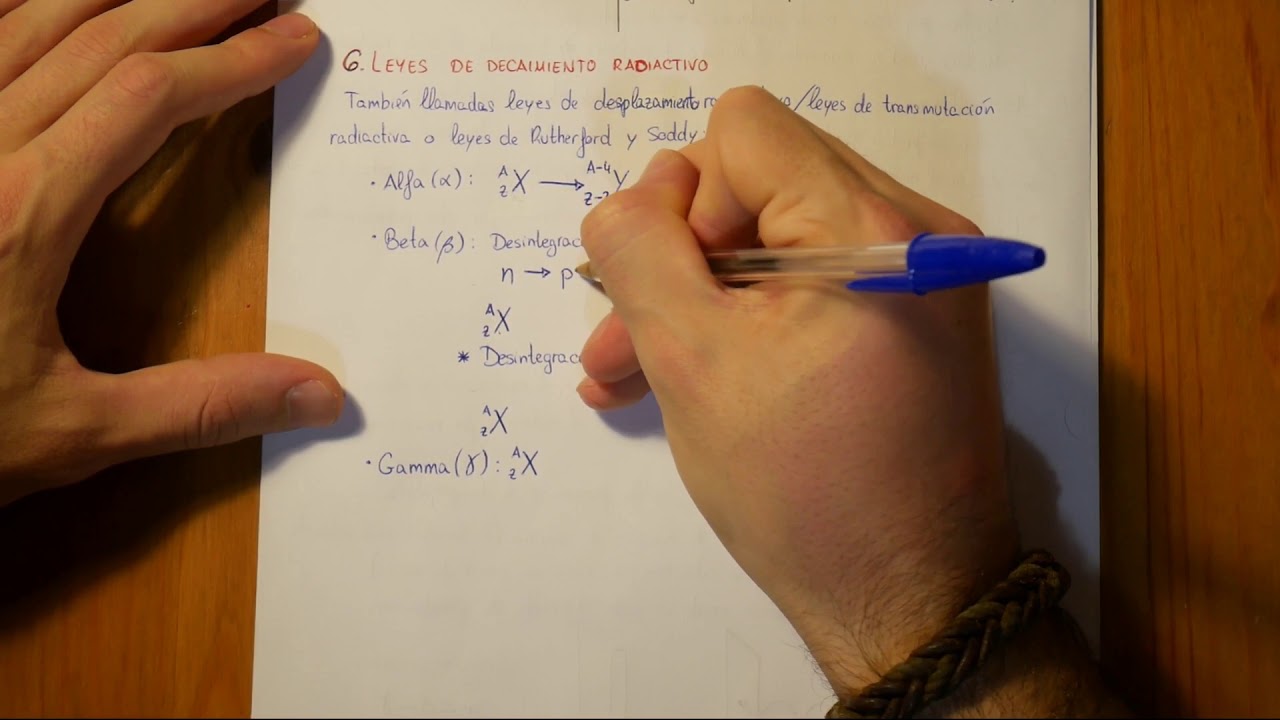 6. LEYES DE DECAIMIENTO RADIACTIVO
También llamadas leyes de desplazamiento /leyes de transmutación
radiactiva o leyes de Rutherford y Soddy:
· Alfa (α): ᴬ_Z X → ᴬ⁻⁴ Y
· Beta (β):
n → p
ᴬ_Z X
*
ᴬ_Z X
· Gamma (γ): ᴬ_Z X